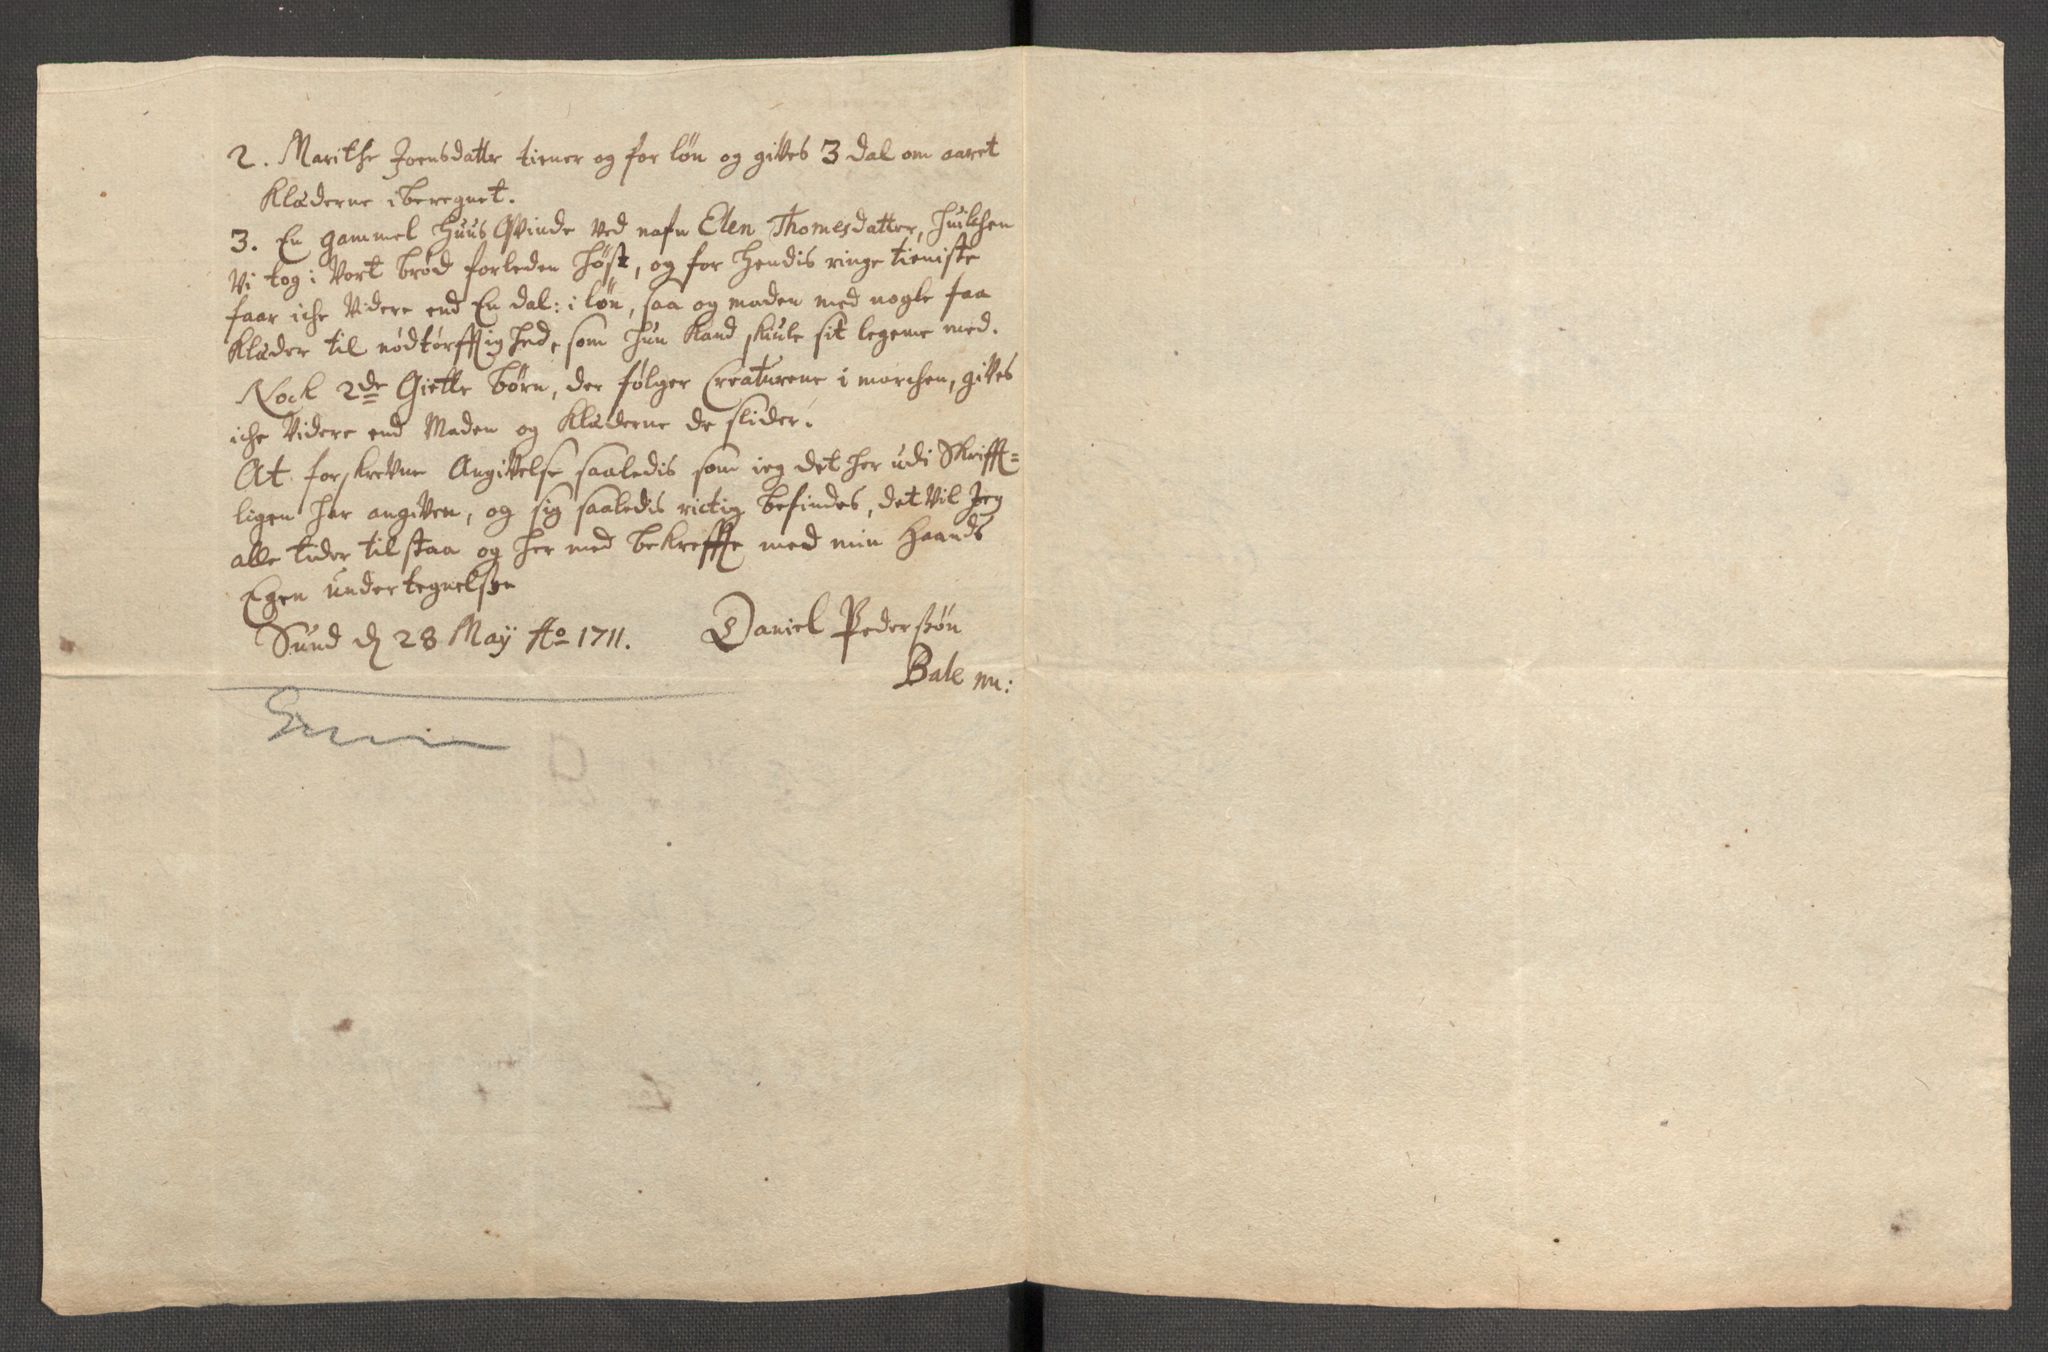 2. Marithe Joensdattr tiener og for løn og gives 3 dal om aaret
Klæderne iberegnet.
3. En gammel Huus Qvinde Ved nafn Elen Thomesdatter, huilchen
Vi tog i Vort brød forleden høst, og for hendis ringe tieniste
faar iche Videre end En dal: i løn, saa og maden med nogle faa
Klæder til nødtørfftighed, som hun kand skiule sit legeme med.
Nock 2de Giette børn, der følger Creaturene i marchen, gives
iche Videre end Maden og Klæderne de slider.
At forskrevne Angivelse saaledis som ieg det her udi Skrifft=
ligen har angiven, og sig saaledis rictig befindes, det Vil Jeg
alle tider tilstaa og her med bekreffte med min Haands
Egen undertegnelse
Sund d 28 Maÿ Ao 1711. Daniel Pederssøn